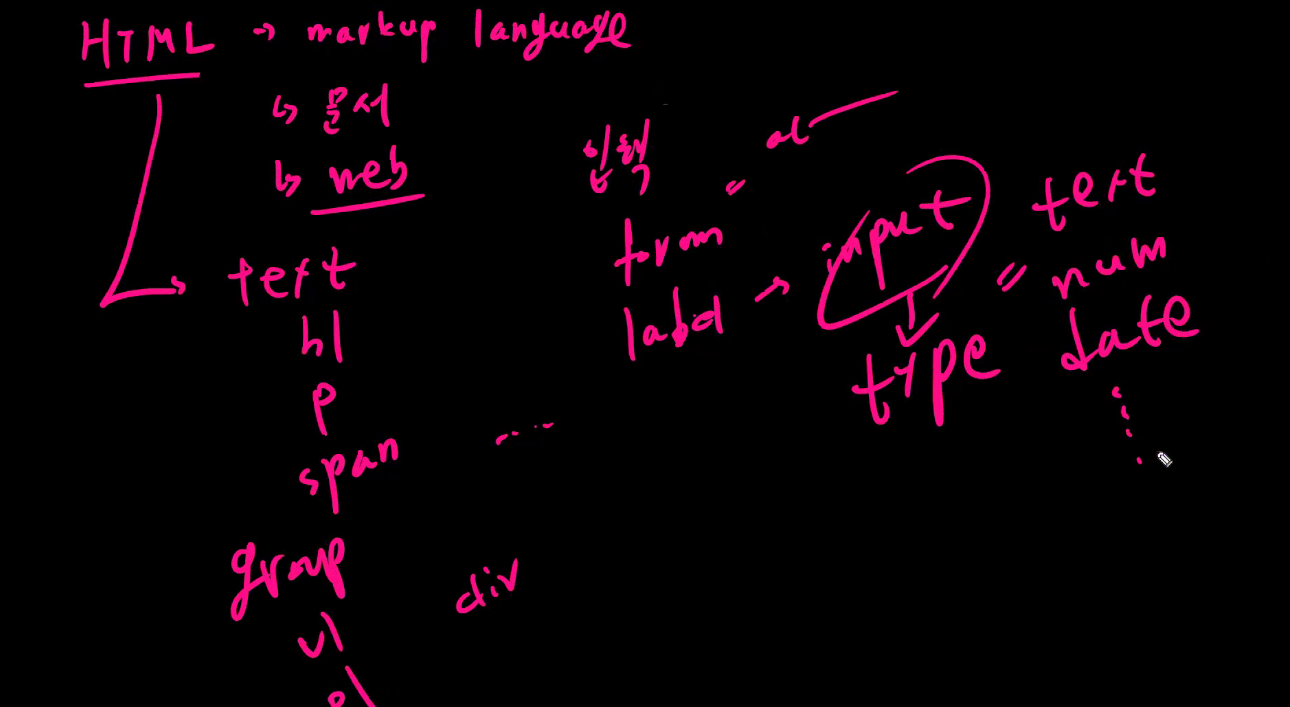 HTML → markup language
↳ 문서
↳ web
text
h1
p
span ....
group
div
ul
ol
입력
form =
label → input
type = text
num
date